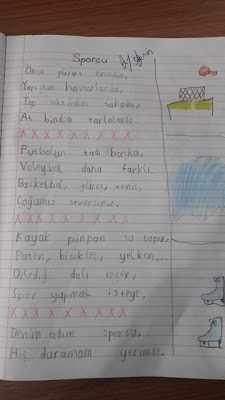 Sporcu
Önce güreşe
Yarıştım havuzlarda,
Top sektirdim sahada,
At bindim tarlalarda.
X X X X X X X X X
Futbolun tadı başka,
Voleybol daha farklı.
Basketbol, güreş, tenis,
Çoğunuz seversiniz.
X X X X X X X X X
Kayak pinpon su topu,
Paten, bisiklet, yelken...
Dilediği dalı seçer,
Spor yapmak isteye.
X X X X X X X X X
Benim adım sporcu,
Hiç duramam yerimde.